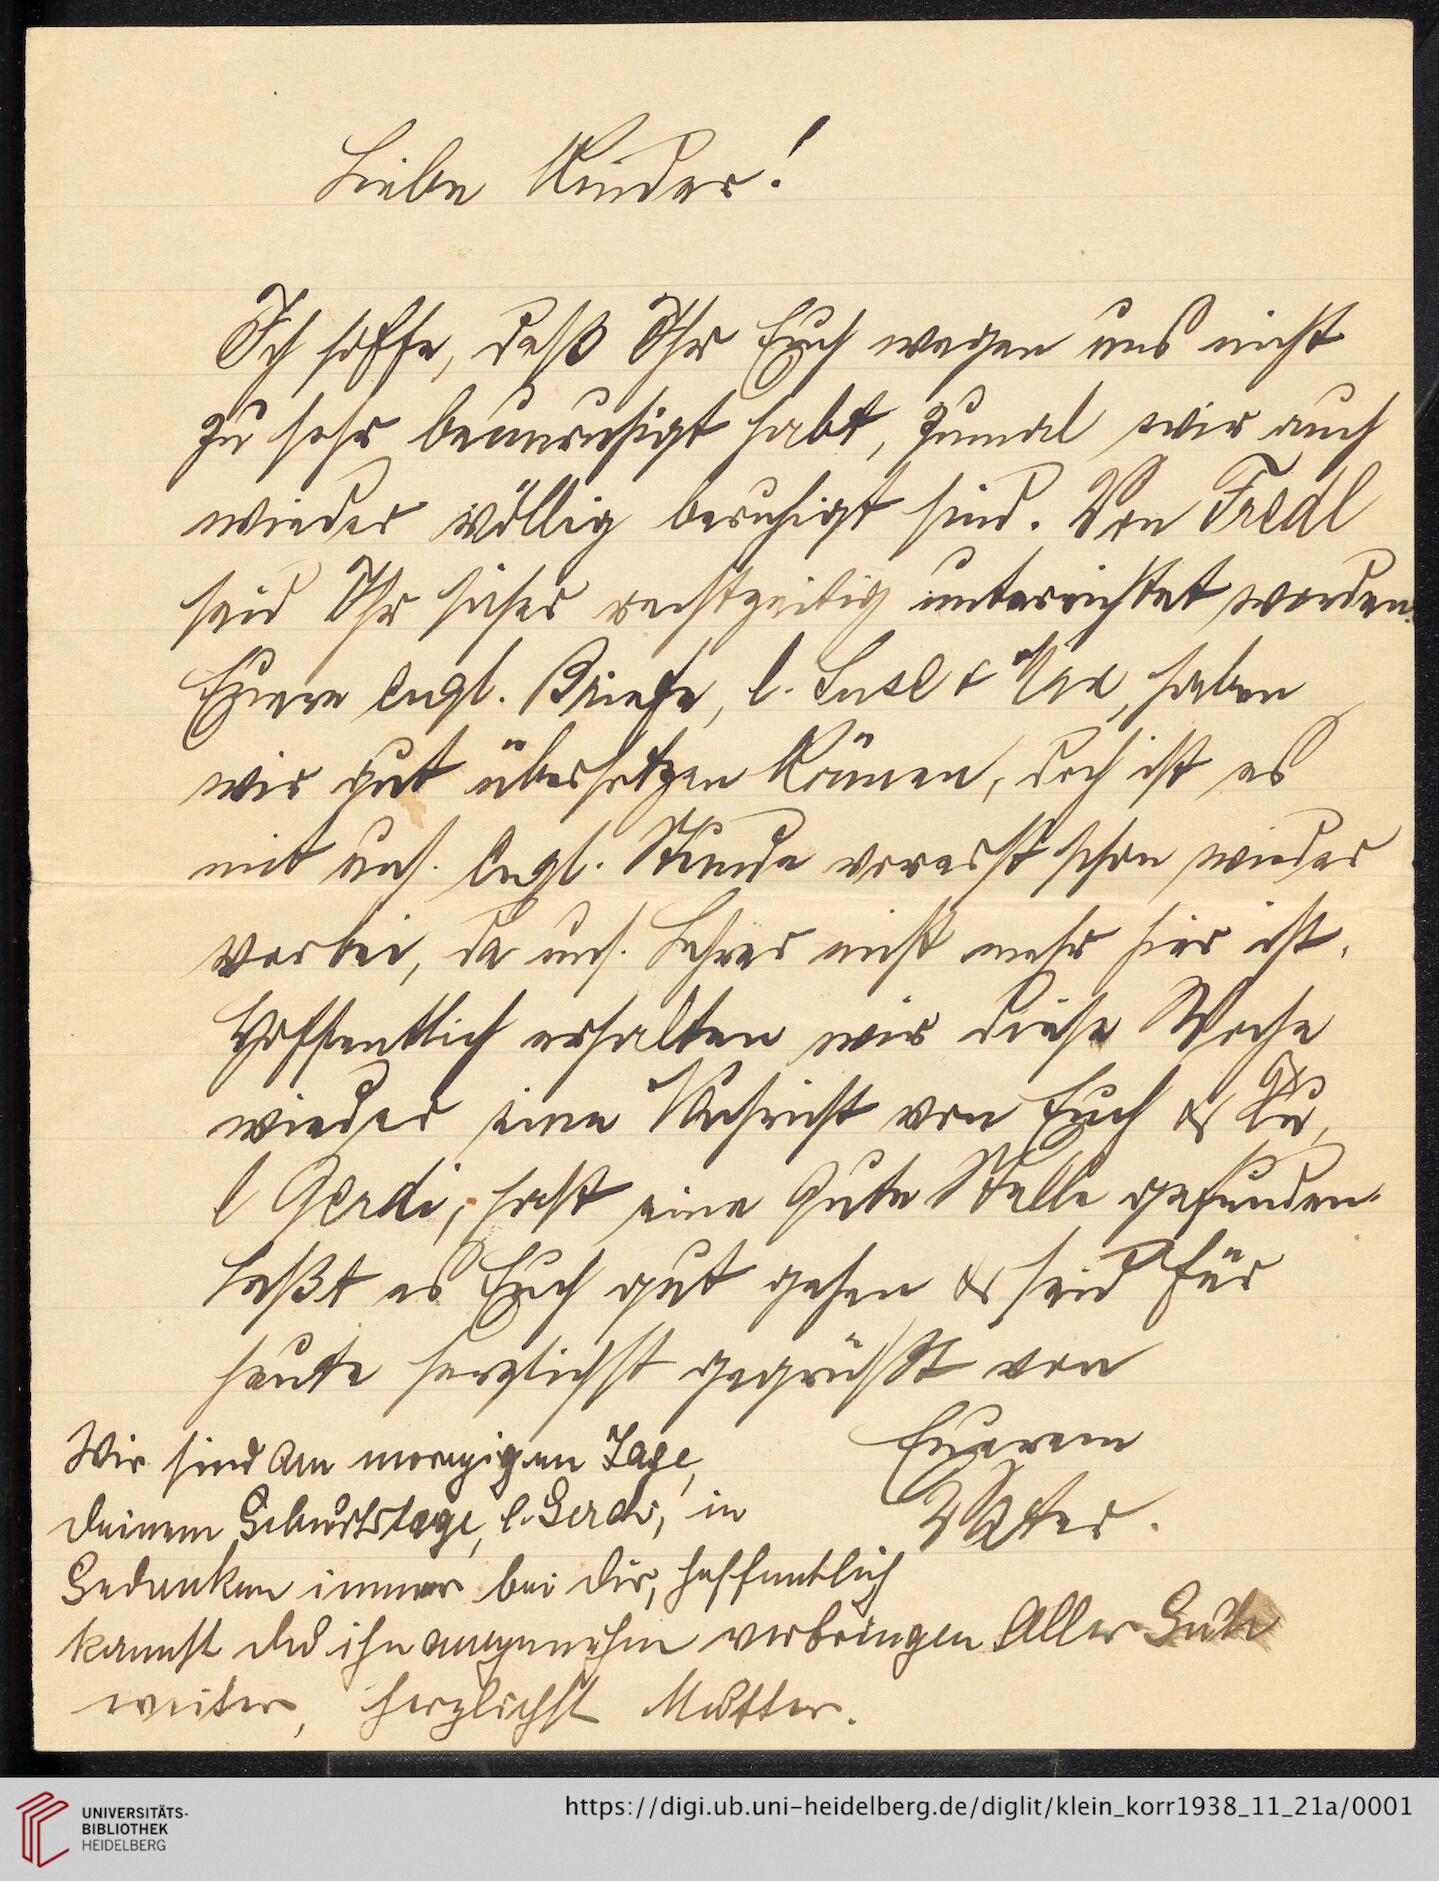 Liebe Kinder!
Ich hoffe, daß Ihr Euch wegen uns nicht
zu sehr beunruhigt habt, zumal wir auch
wieder völlig beruhigt sind. Von Fredl
seid Ihr sicher rechtzeitig unterrichtet worden.
Euere engl. Briefe, l. Susl & Max, haben
wir gut übersetzen können, doch ist es
mit uns. engl. Stunde vorerst schon wieder
vorbei, da uns. Lehrer nicht mehr hier ist.
Hoffentlich erhalten wir diese Woche
wieder eine Nachricht von Euch & Du,
l Gerdi, hast eine gute Stelle gefunden.
Laßt es Euch gut gehen & seid für
heute herzlichst gegrüßt von
Euerem
Vater.
Wir sind am morgigen Tage,
Deinem Geburtstage, l. Gerdi, in
Gedanken immer bei Dir, hoffentlich
kannst Du ihn angenehm verbringen Alles Gute
weiter, herzlichst Mutter.
UNIVERSITÄTS-
BIBLIOTHEK
HEIDELBERG
https://digi.ub.uni-heidelberg.de/diglit/klein_korr1938_11_21a/0001